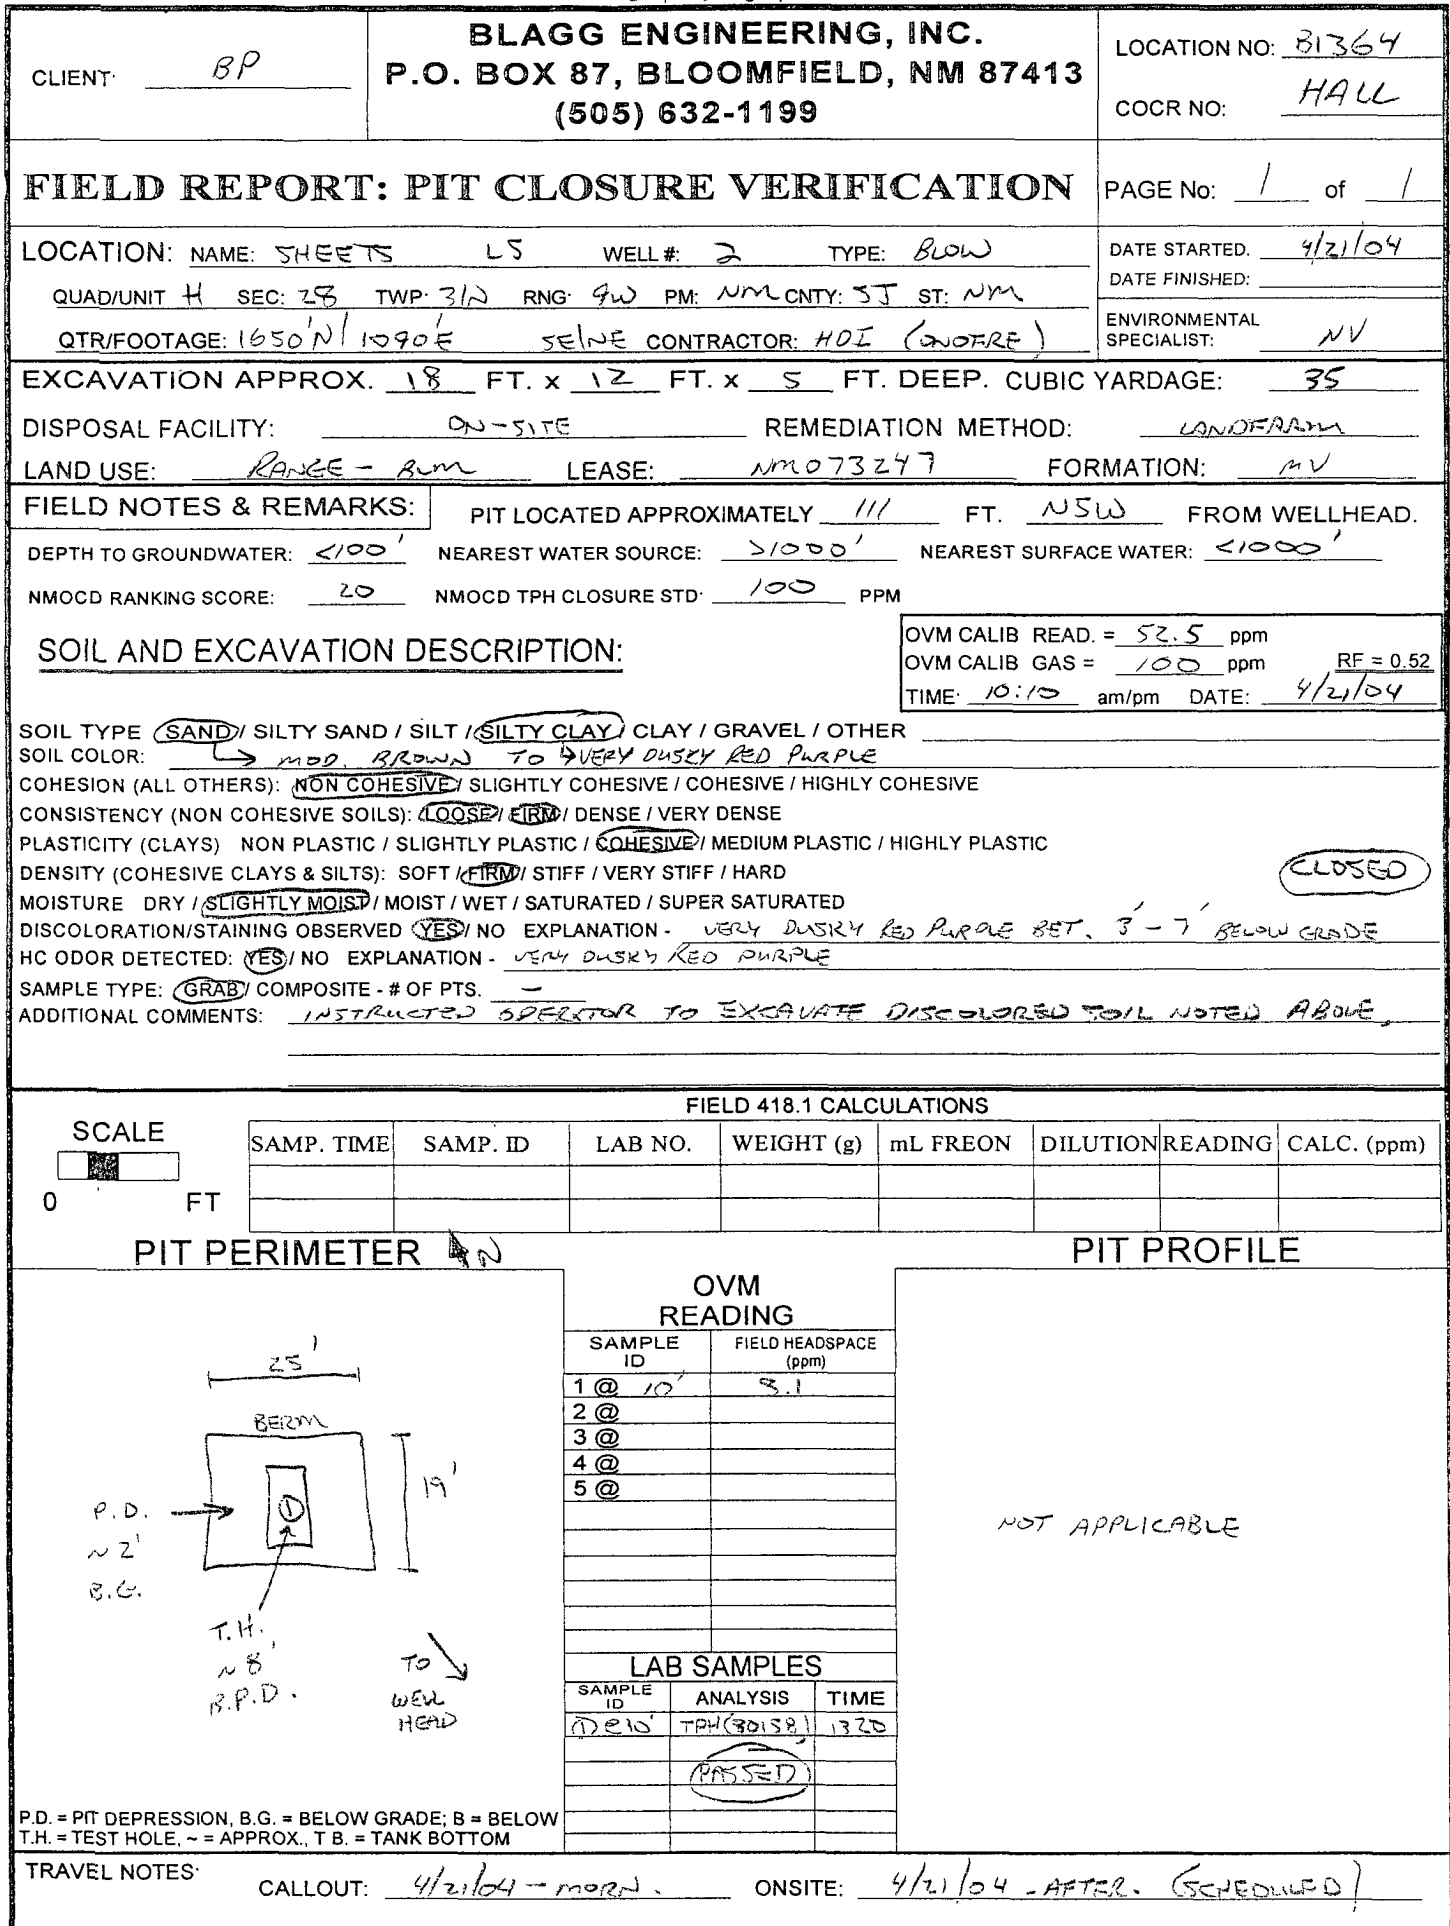 BLAGG ENGINEERING, INC.
P.O. BOX 87, BLOOMFIELD, NM 87413
(505) 632-1199
CLIENT: BP
LOCATION NO: B1364
COCR NO: HALL
FIELD REPORT: PIT CLOSURE VERIFICATION
PAGE No: 1 of 1
LOCATION: NAME: SHEETS LS WELL #: 2 TYPE: BLOW
QUAD/UNIT H SEC: 28 TWP: 31N RNG: 9W PM: NM CNTY: SJ ST: NM
QTR/FOOTAGE: 1650'N/1090'E SE/NE CONTRACTOR: HDI (ONOFRE)
DATE STARTED. 4/21/04
DATE FINISHED:
ENVIRONMENTAL SPECIALIST: NV
EXCAVATION APPROX. 18 FT. x 12 FT. x 5 FT. DEEP. CUBIC YARDAGE: 35
DISPOSAL FACILITY: ON-SITE REMEDIATION METHOD: LANDFARM
LAND USE: RANGE - BLM LEASE: NM073247 FORMATION: MV
FIELD NOTES & REMARKS: PIT LOCATED APPROXIMATELY 111 FT. N5W FROM WELLHEAD.
DEPTH TO GROUNDWATER: <100' NEAREST WATER SOURCE: >1000' NEAREST SURFACE WATER: <1000'
NMOCD RANKING SCORE: 20 NMOCD TPH CLOSURE STD: 100 PPM
SOIL AND EXCAVATION DESCRIPTION:
OVM CALIB READ. = 52.5 ppm
OVM CALIB GAS = 100 ppm RF = 0.52
TIME: 10:10 am/pm DATE: 4/21/04
SOIL TYPE SAND / SILTY SAND / SILT / SILTY CLAY / CLAY / GRAVEL / OTHER
SOIL COLOR: MOD. BROWN TO VERY DUSKY RED PURPLE
COHESION (ALL OTHERS): NON COHESIVE / SLIGHTLY COHESIVE / COHESIVE / HIGHLY COHESIVE
CONSISTENCY (NON COHESIVE SOILS): LOOSE / FIRM / DENSE / VERY DENSE
PLASTICITY (CLAYS) NON PLASTIC / SLIGHTLY PLASTIC / COHESIVE / MEDIUM PLASTIC / HIGHLY PLASTIC
DENSITY (COHESIVE CLAYS & SILTS): SOFT / FIRM / STIFF / VERY STIFF / HARD
CLOSED
MOISTURE DRY / SLIGHTLY MOIST / MOIST / WET / SATURATED / SUPER SATURATED
DISCOLORATION/STAINING OBSERVED YES / NO EXPLANATION - VERY DUSKY RED PURPLE BET. 3' - 7' BELOW GRADE
HC ODOR DETECTED: YES / NO EXPLANATION - VERY DUSKY RED PURPLE
SAMPLE TYPE: GRAB / COMPOSITE - # OF PTS. -
ADDITIONAL COMMENTS: INSTRUCTED OPERATOR TO EXCAVATE DISCOLORED SOIL NOTED ABOVE.
FIELD 418.1 CALCULATIONS
SCALE
0 FT
SAMP. TIME SAMP. ID LAB NO. WEIGHT (g) mL FREON DILUTION READING CALC. (ppm)
PIT PERIMETER N
PIT PROFILE
OVM
READING
SAMPLE ID FIELD HEADSPACE (ppm)
1 @ 10' 3.1
2 @
3 @
4 @
5 @
25'
BERM
19'
P.D.
~ 2'
B.G.
1
T.H.
~ 8'
B.P.D.
TO
WELL
HEAD
NOT APPLICABLE
LAB SAMPLES
SAMPLE ID ANALYSIS TIME
①@10' TPH(8015B) 1320
PASSED
P.D. = PIT DEPRESSION, B.G. = BELOW GRADE; B = BELOW
T.H. = TEST HOLE, ~ = APPROX., T B. = TANK BOTTOM
TRAVEL NOTES: CALLOUT: 4/21/04 - MORN. ONSITE: 4/21/04 - AFTER. (SCHEDULED)